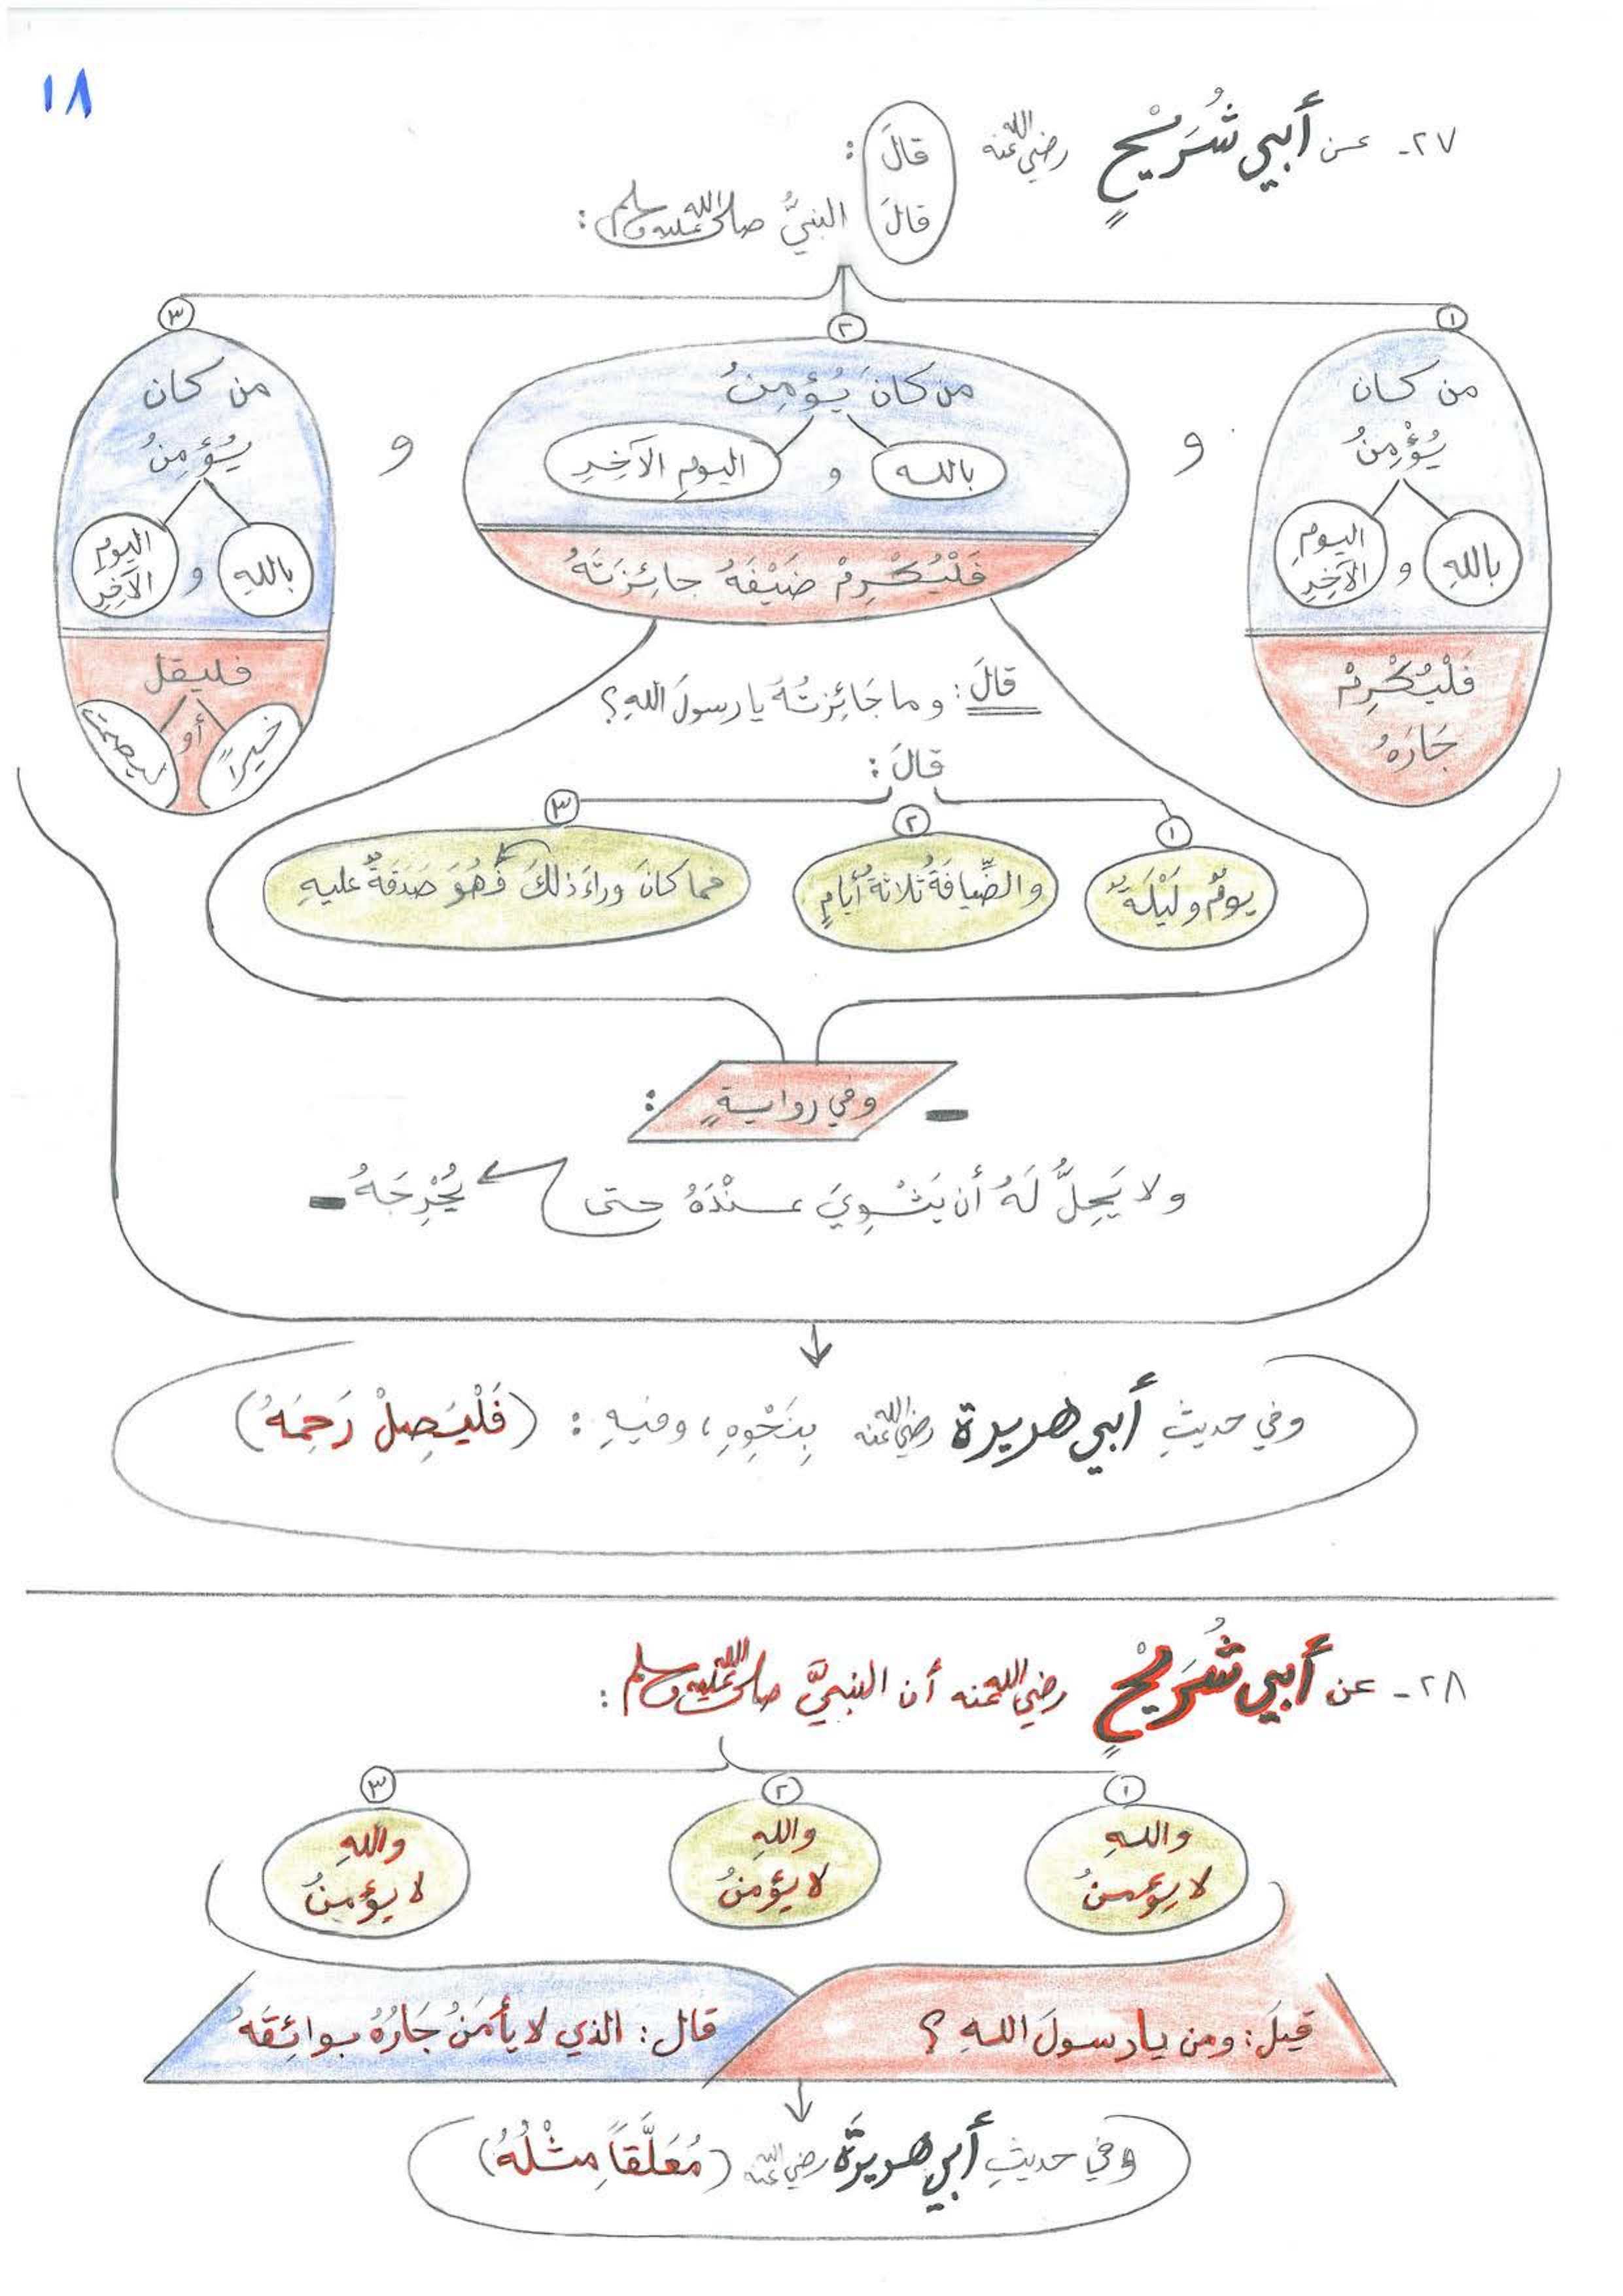 ١٨
٢٧- عن أبي شُرَيْحٍ رضي الله عنه قالَ:
قالَ النبيُّ صلى الله عليه وسلم:
١
من كان
يُؤْمِنُ
باللهِ و اليومِ الآخِرِ
فَلْيُكْرِمْ
جَارَهُ
و
٢
من كانَ يُؤمِنُ
بالله و اليومِ الآخِرِ
فَلْيُكْرِمْ ضَيْفَهُ جائِزَتَهُ
و
٣
من كان
يُؤمِنُ
باللهِ و اليومِ الآخِرِ
فليقل
خيراً أو ليصمت
قالَ: وما جَائِزتُهُ يا رسولَ اللهِ؟
قالَ:
١
يومٌ و لَيْلَةٌ
٢
والضِّيافَةُ ثلاثةُ أيامٍ
٣
فما كانَ وراءَ ذلكَ فَهُوَ صَدَقَةٌ عليهِ
- وفي روايةٍ:
ولا يَحِلُّ لَهُ أن يَثْوِيَ عِنْدَهُ حتى يُحْرِجَهُ -
وفي حديثِ أبي هريرة رضي الله عنه بِنَحْوِهِ، وفيهِ: (فَلْيَصِلْ رَحِمَهُ)
٢٨- عن أبي شُرَيْحٍ رضي الله عنه أن النبيَّ صلى الله عليه وسلم:
١
واللهِ
لا يؤمنُ
٢
واللهِ
لا يؤمنُ
٣
واللهِ
لا يؤمنُ
قيلَ: ومن يا رسولَ اللهِ؟
قال: الذي لا يأمَنُ جَارُهُ بوائِقَهُ
وفي حديثِ أبي هريرَةَ رضي الله عنه (مُعَلَّقاً مِثْلُهُ)